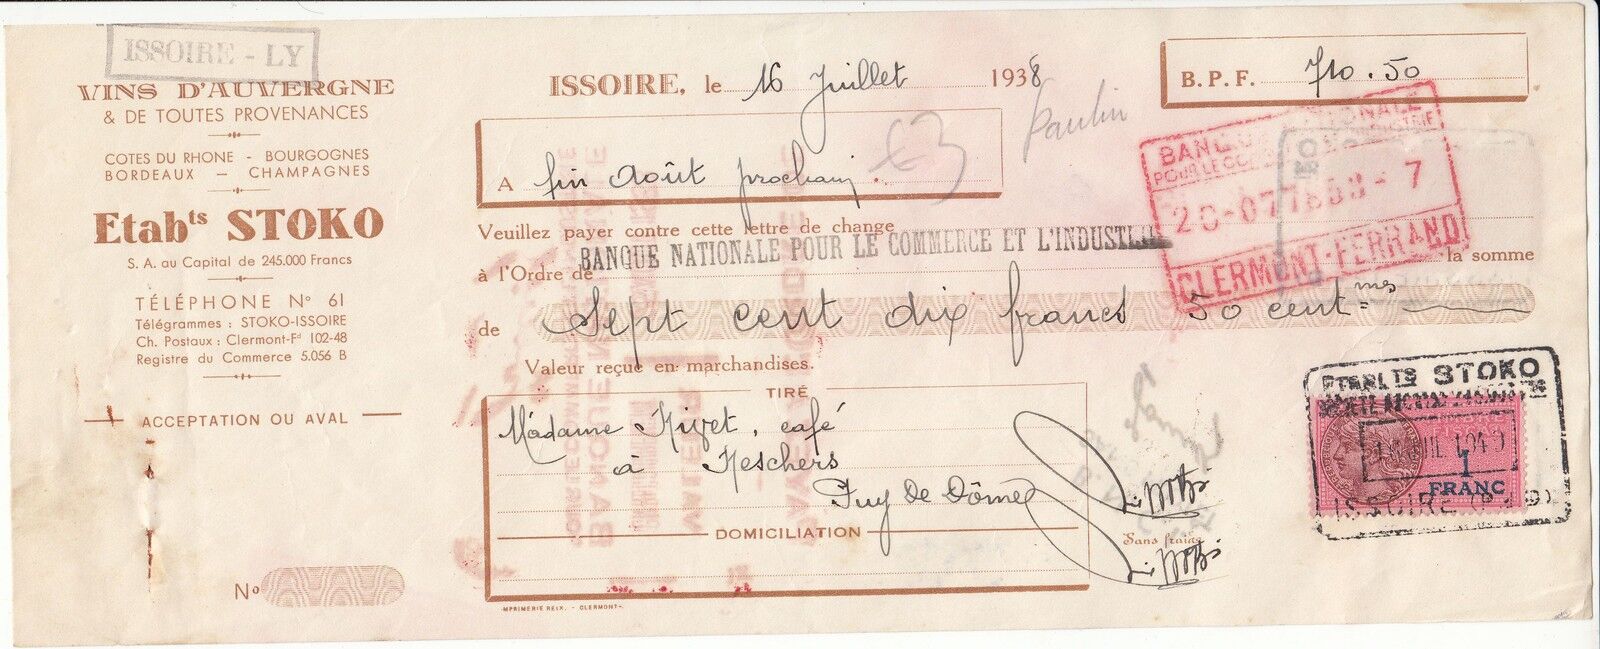 ISSOIRE - LY
VINS D'AUVERGNE
& DE TOUTES PROVENANCES
COTES DU RHONE - BOURGOGNES
BORDEAUX - CHAMPAGNES
Etabts STOKO
S. A. au Capital de 245.000 Francs
TÉLÉPHONE No 61
Télégrammes : STOKO-ISSOIRE
Ch. Postaux : Clermont-Fd 102-48
Registre du Commerce 5.056 B
ACCEPTATION OU AVAL
No
ISSOIRE, le 16 Juillet 1938
B. P. F. 710.50
Paulin
A fin Août prochain.
Veuillez payer contre cette lettre de change
à l'Ordre de BANQUE NATIONALE POUR LE COMMERCE ET L'INDUSTRIE la somme
de Sept cent dix francs 50 centmes
Valeur reçue en marchandises.
TIRÉ
Madame Rivet, café
à Neschers
Puy de Dôme
DOMICILIATION
Sans frais
IMPRIMERIE REIX. - CLERMONT-
BANQUE NATIONALE
POUR LE COMMERCE ET L'INDUSTRIE
CLERMONT-FERRAND
ETABLTS STOKO
1
FRANC
ISSOIRE (P. D.)